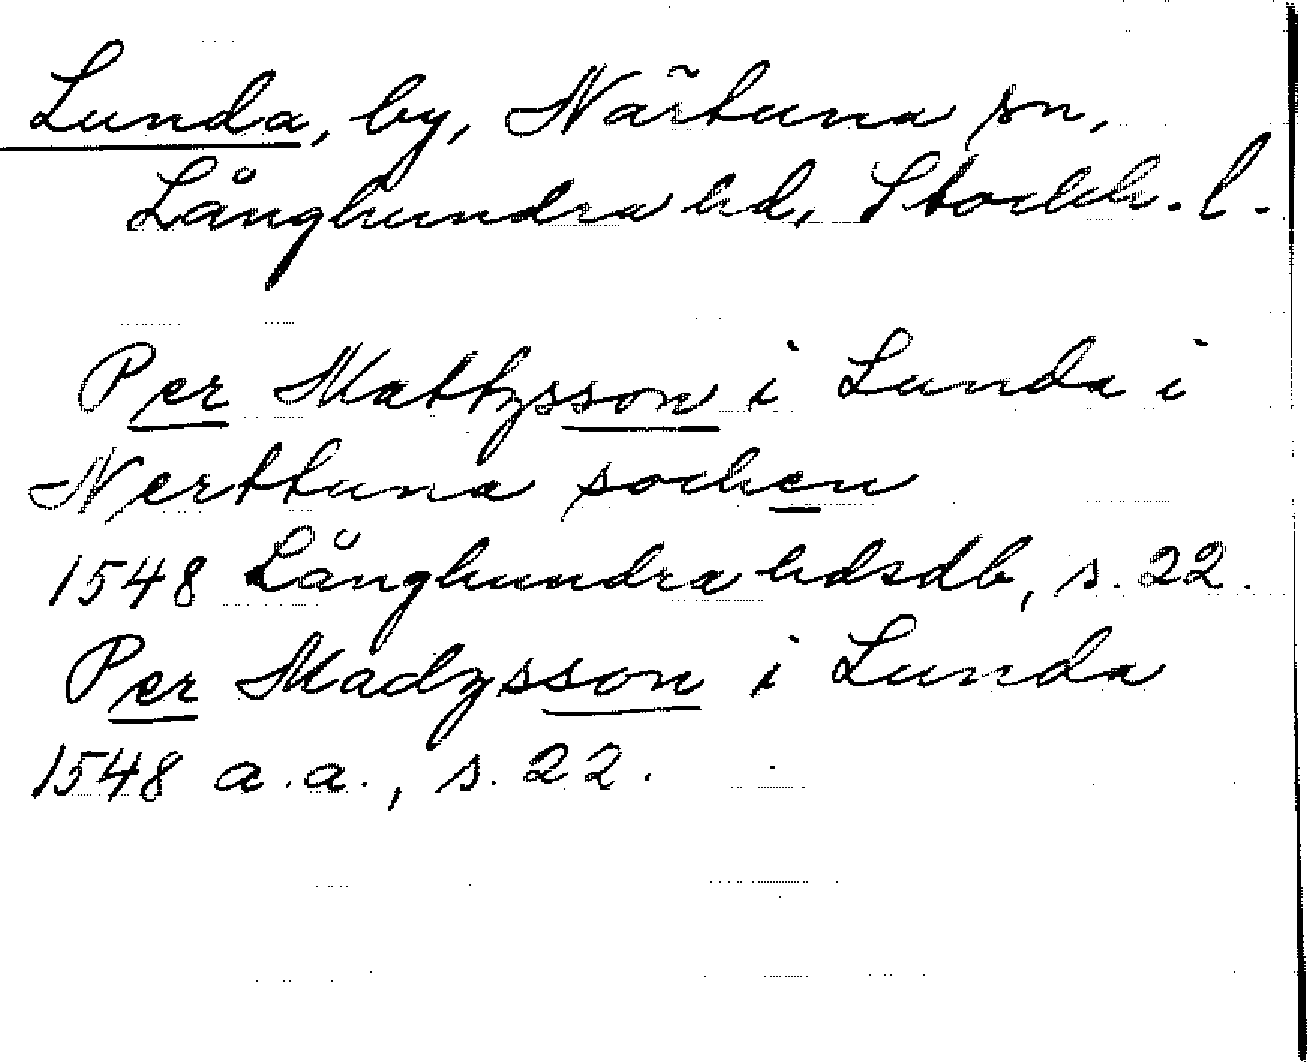 Lunda, by, Närtuna sn,
Långhundra hd, Stockh. l.
Per Mattzsson i Lunda i
Nerttuna socken
1548 Långhundra hdsdb, s. 22.
Per Madzsson i Lunda
1548 a.a., s. 22.